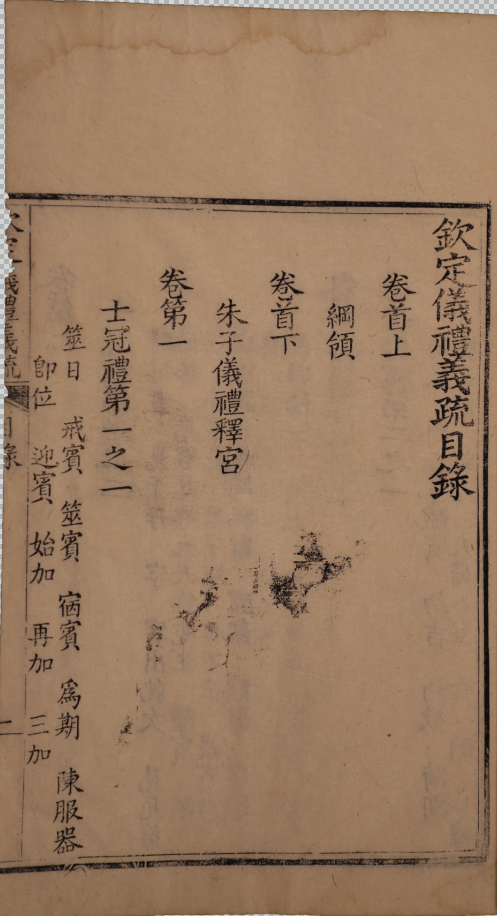 欽定儀禮義疏目錄
卷首上
綱領
卷首下
朱子儀禮釋宮
卷第一
士冠禮第一之一
筮日 戒賓 筮賓 宿賓 爲期 陳服器
卽位 迎賓 始加 再加 三加
欽定儀禮義疏 目錄 二